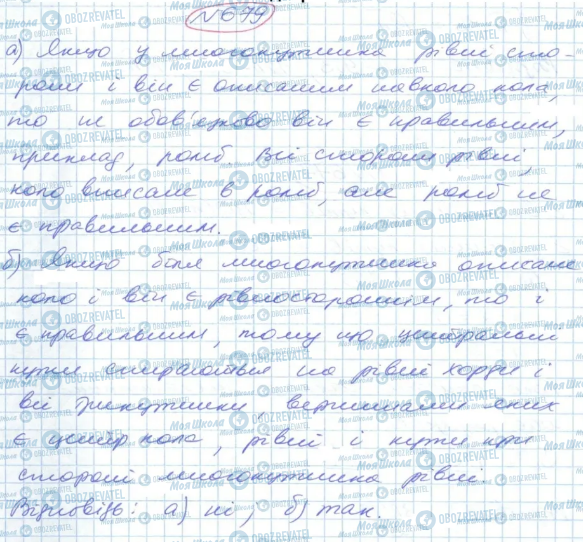 №679
а) Якщо у многокутника рівні сто-
рони і він є описаним навколо кола,
то не обов'язково він є правильним,
приклад, ромб. Всі сторони рівні,
коло вписане в ромб, але ромб не
є правильним.
б) Якщо біля многокутника описане
коло і він є рівностороннім, то і
є правильним, тому що центральні
кути спираються на рівні хорди і
всі трикутники, вершинами яких
є центр кола, рівні і кути при
стороні многокутника рівні.
Відповідь: а) ні; б) так.